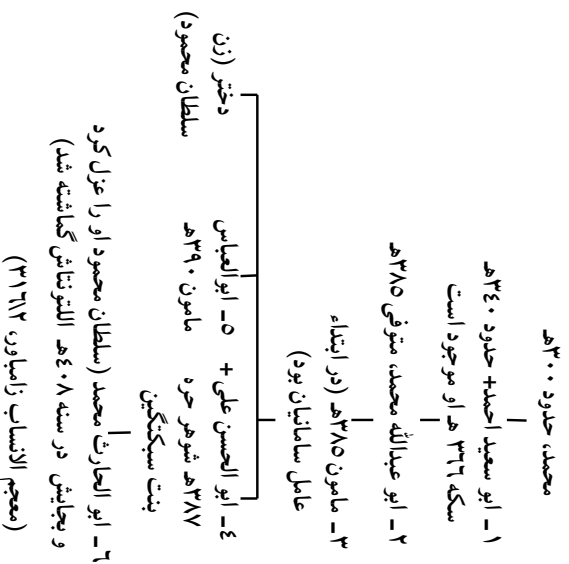 محمد، حدود ۳۰۰هـ
۱ـ ابو سعید احمد+ حدود ۳٤۰هـ
سکه ۳٦٦ هـ او موجود است
۲ ـ ابو عبدالله محمد، متوفی ۳۸۵هـ
۳ ـ مامون ۳۸۵هـ (در ابتداء
عامل سامانیان بود)
٤ـ ابو الحسن علی +
۳۸۷هـ شوهر حره
بنت سبکتگین
۵ ـ ابوالعباس
مامون ۳۹۰هـ
دختر (زن
سلطان محمود)
٦ـ ابو الحارث محمد (سلطان محمود او را عزل کرد
و بجایش در سنه ٤۰۸هـ اللتونتاش گماشته شد)
(معجم الانساب زامباور، ۳۱٦\۲)